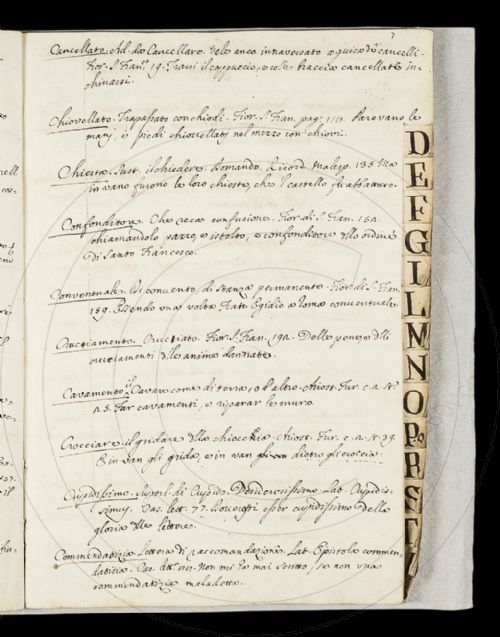 7
Cancellato. Ad. da Cancellare. Velo anco intraversato a guisa di cancelli.
Fior. S. Fran. 19. Trassi il cappuccio, e colle braccia cancellate in-
chinarsi.
Chiovellato. Trapassato con chiodi. Fior. S. Fran. pag. 111. Parevano le
mani, e piedi chiovellati nel mezzo con chiovi.
Chiesta. Sust. il chiedere. Domando. Ricord. Malesp. 135. Ma
in vano furono le loro chieste, che 'l castello fu abbattuto.
Confonditore. Che reca confusione. Fior. di S. Fran. 152.
chiamandolo pazzo, e istolto, e confonditore dello ordine
di santo Francesco.
Conventuale. Di convento, di stanza permanente. Fior. di S. Fran.
189. Essendo una volta Frate Egidio a Roma conventuale
Cruciamento. Cruciato. Fior. S. Fran. 192. Delle pene, e delli
cruciamenti delle anime dannate.
Cavamento. il Cavare come di terra, o d'altro. Ariost. Fur. c. 2. st.
25. Far cavamenti, e riparar le mura
Crocciare. il gridare della chioccia. Ariost. Fur. c. 2. st. 39.
E in van gli grida, e in van dietro gli croccia
Cupidissimo. Superl. di Cupido. Desiderosissimo. Lat. Cupidis-
simus. Cas. lett. 77. esser cupidissimo della
gloria delle lettere.
Commendatizia Lettera di raccomandazione. Lat. Epistola commen-
datitia. Cas. lett. Non mi ha mai scritto, se non una
commendatizia maladetta.
D
E
F
G
I
L
M
N
O
P
R
S
T
V